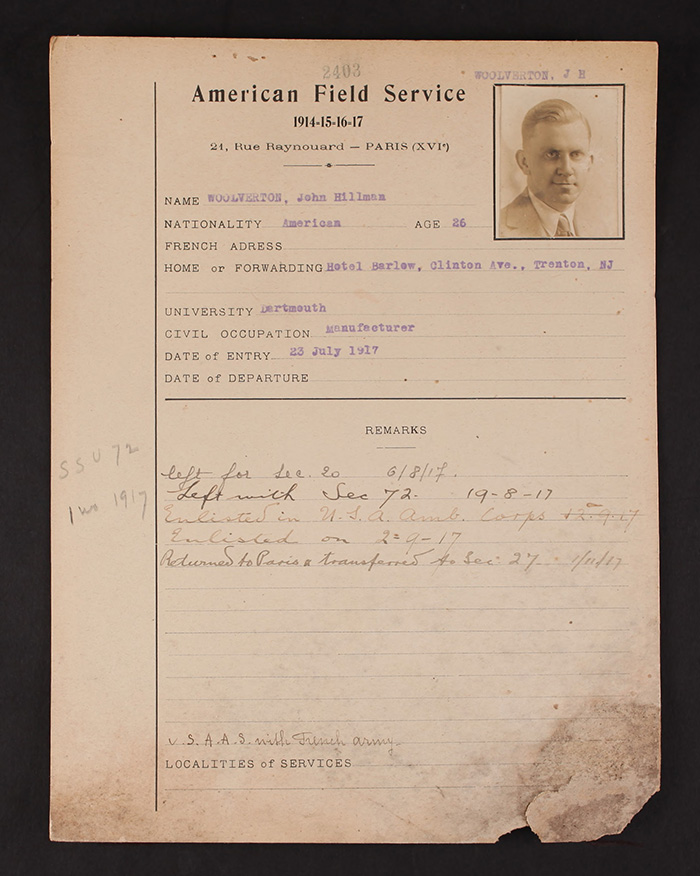 2403
WOOLVERTON, J H
American Field Service
1914-15-16-17
21, Rue Raynouard — PARIS (XVIe)
NAME WOOLVERTON, John Hillman
NATIONALITY American AGE 26
FRENCH ADRESS
HOME or FORWARDING Hotel Barlow, Clinton Ave., Trenton, NJ
UNIVERSITY Dartmouth
CIVIL OCCUPATION Manufacturer
DATE of ENTRY 23 July 1917
DATE of DEPARTURE
REMARKS
SSU 72
1917
left for Sec. 20 6/8/17.
Left with Sec 72. 19-8-17
Enlisted in U.S.A. Amb. Corps 12-9-17
Enlisted on 2=9-17
Returned to Paris & transferred to Sec 27 1/11/17
U.S.A.A.S. with French army
LOCALITIES of SERVICES